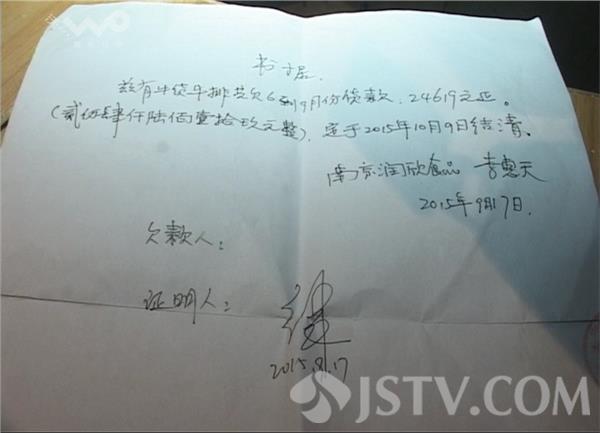 兹有牛佬牛排共欠6到9月份货款，24619元正。
（贰万肆仟陆佰壹拾玖元整），定于2015年10月9日结清。
南京润欣食品 李惠天
2015年9月17日.
欠款人：
证明人：
2015.9.17
JSTV.COM